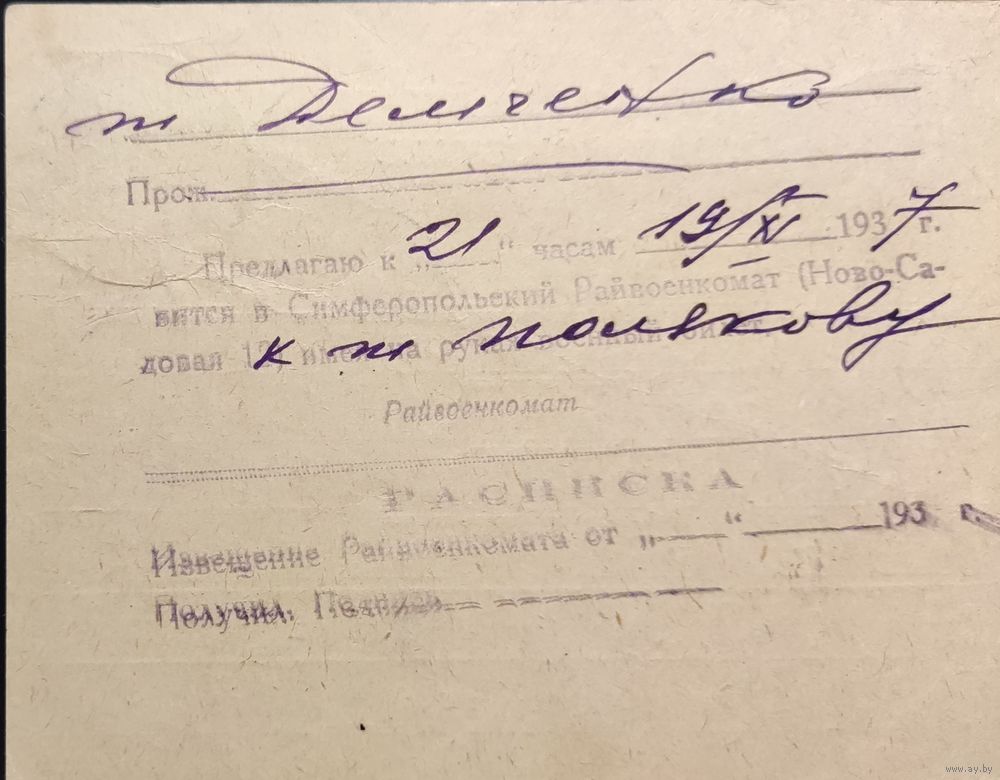 т Демченко
Прож.
Предлагаю к „21“ часам 19/XI 1937 г.
вится в Симферопольский Райвоенкомат (Ново-Са-
довая 12) имея на руках военный билет.
к т Полякову
Райвоенкомат
РАСПИСКА
Извещение Райвоенкомата от „ “ 193 г.
Получил. Подпись
www.ay.by